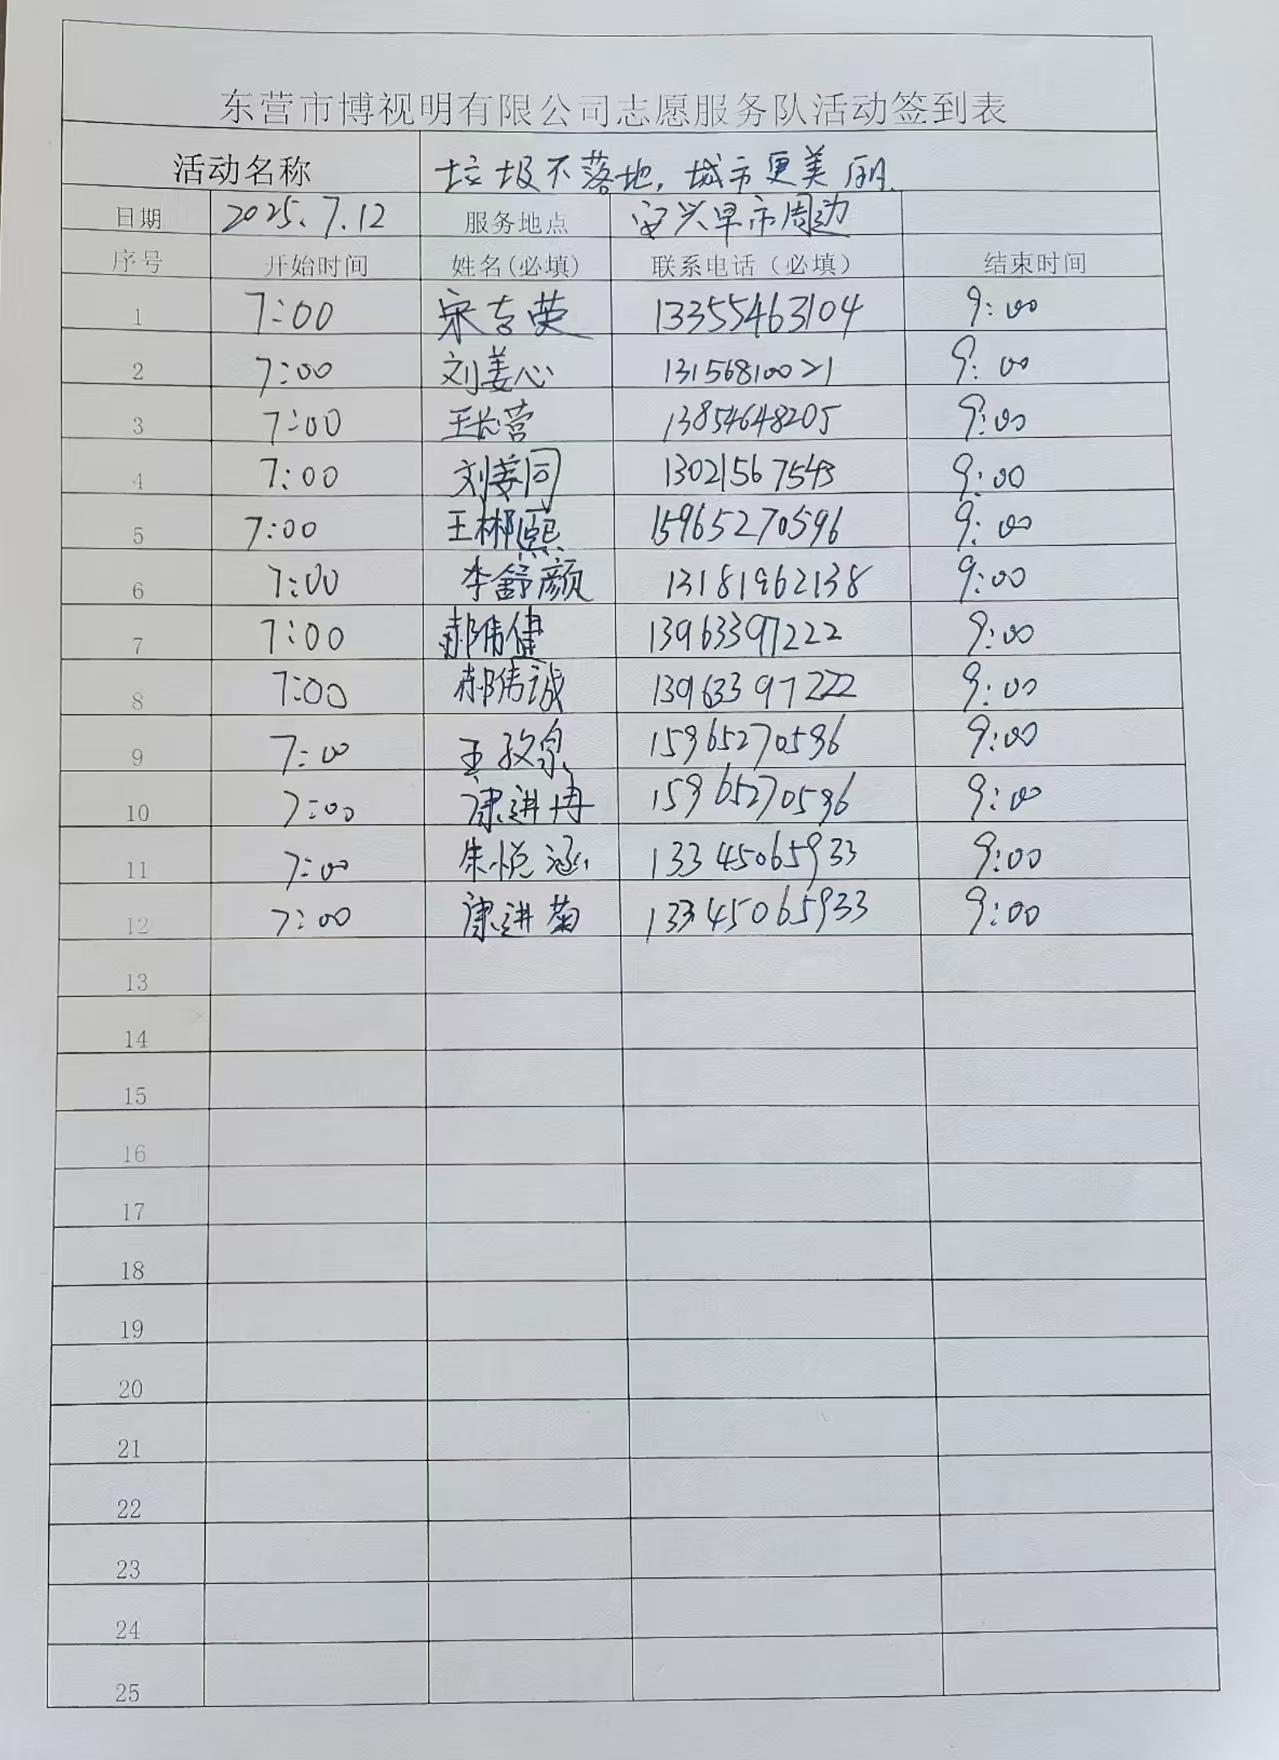 东营市博视明有限公司志愿服务队活动签到表
活动名称 垃圾不落地,城市更美丽.
日期 2025.7.12 服务地点 安兴早市周边
序号 开始时间 姓名(必填) 联系电话(必填) 结束时间
1 7:00 宋吉英 13355463104 9:00
2 7:00 刘姜心 13156810021 9:00
3 7:00 王长营 13854648205 9:00
4 7:00 刘姜同 13021567543 9:00
5 7:00 王郴熙 15965270596 9:00
6 7:00 李舒颜 13181962138 9:00
7 7:00 郝伟健 13963397222 9:00
8 7:00 郝伟诚 13963397222 9:00
9 7:00 王孜泉 15965270596 9:00
10 7:00 康进冉 15965270596 9:00
11 7:00 朱悦涵 13345065933 9:00
12 7:00 康进菊 13345065933 9:00
13
14
15
16
17
18
19
20
21
22
23
24
25